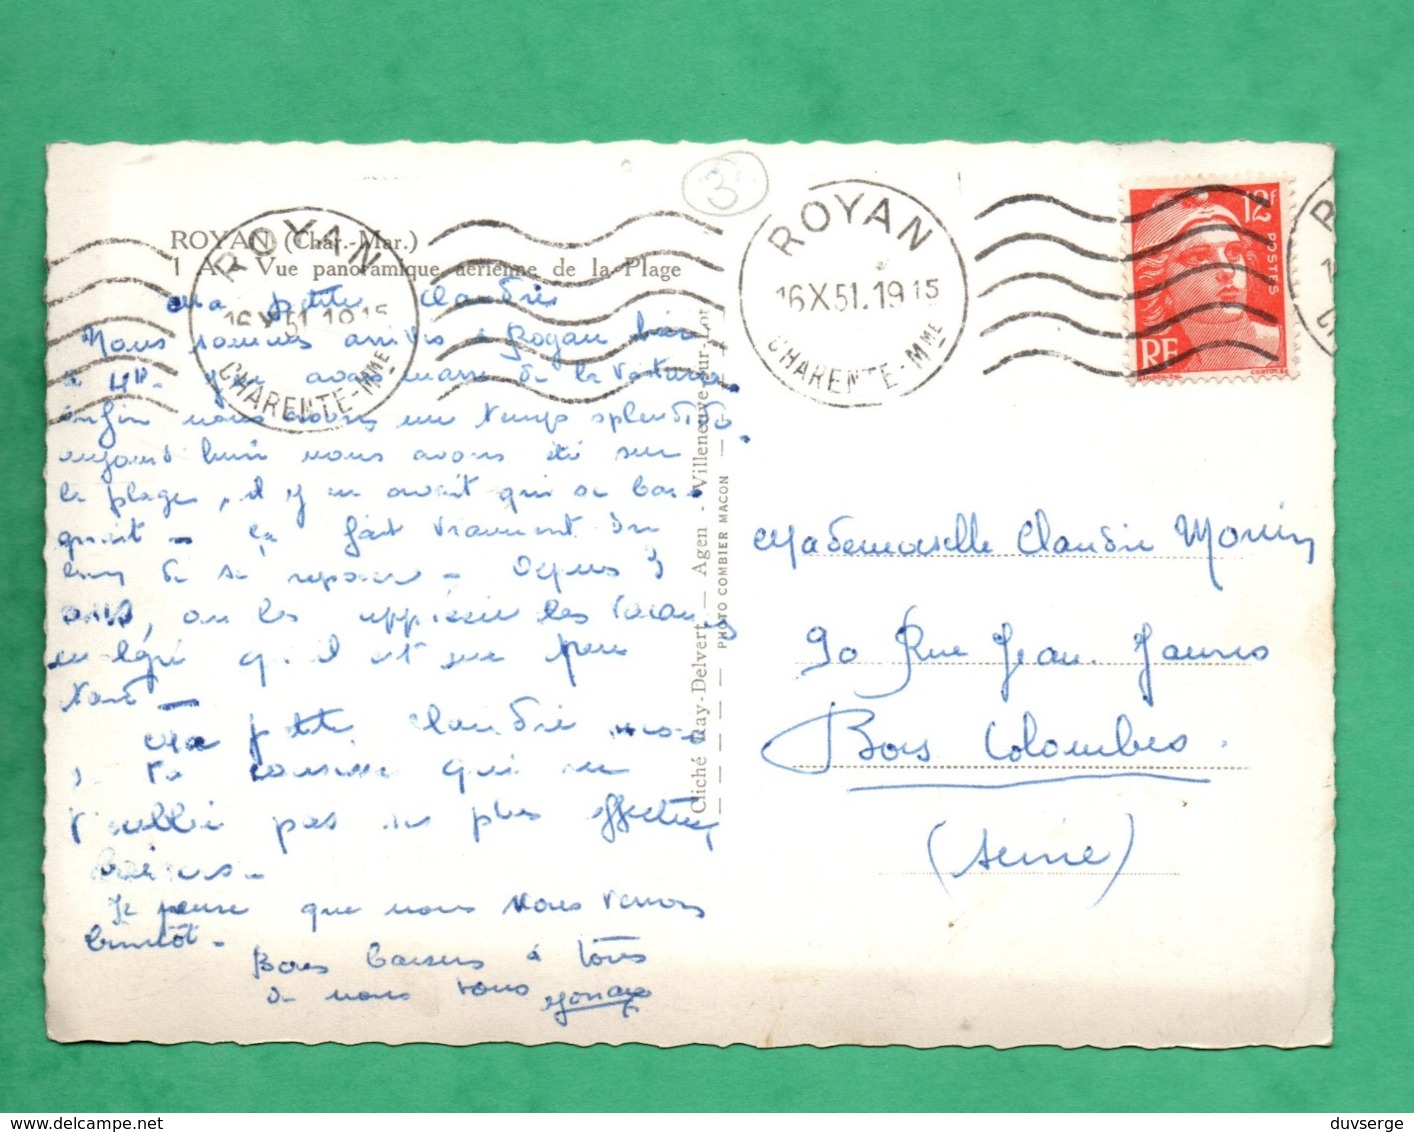 3
ROYAN (Char.-Mar.)
1 A. - Vue panoramique aérienne de la Plage
ROYAN
16 X 51. 19 15
CHARENTE-Mme
ROYAN
16 X 51. 19 15
CHARENTE-Mme
12F
POSTES
RF
Ma petite Claudie
Nous sommes arrivés à Royan hier
à 4H. J'en avais marre de la voiture
enfin nous avons un temps splendide.
aujourd'hui nous avons été sur
la plage, il y en avait qui se bai-
gnait - ça fait vraiment du
bien de se reposer - Depuis 3
ans, on les apprécie les vacances
malgré qu'il est un peu
tard -
Ma petite Claudie
ta cousine qui ne
t'oublie pas ses plus affectueux
baisers -
Je pense que nous vous verrons
bientôt -
Bons baisers à tous
de nous tous
Cliché Ray-Delvert - Agen - Villeneuve-sur-Lot
PHOTO COMBIER MACON
Mademoiselle Claudie
90 Rue Jean Jaurès
Bois Colombes.
(Seine)
duvserge